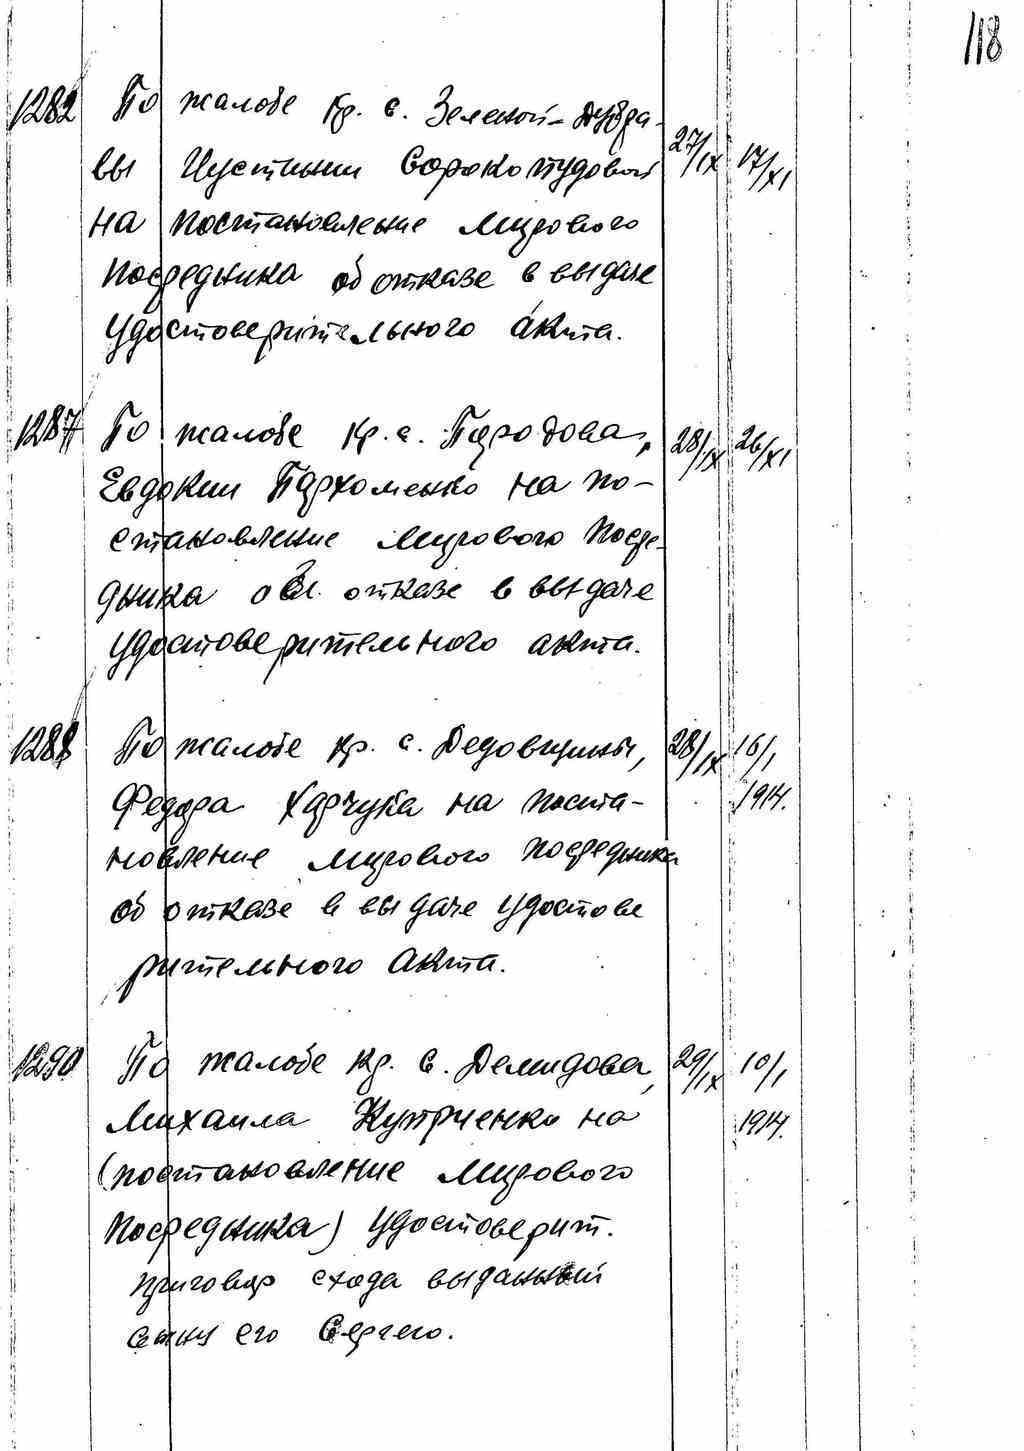 118
1282 По жалобе кр. с. Зеленой-Дубра- 27/IX 17/XI
вы Иустины Сорокопудовой
на постановление Мирового
Посредника об отказе в выдаче
удостоверительного акта.
1287 По жалобе кр. с. Пародова, 28/IX 26/XI
Евдокии Пархоменко на по-
становление мирового Посре-
дника об отказе в выдаче
удостоверительного акта.
1288 По жалобе кр. с. Дедовщины, 28/IX 16/I
Федора Харчука на поста- 1914.
новление мирового посредника
об отказе в выдаче удостове
рительного акта.
1290 По жалобе кр. с. Демидова, 29/IX 10/I
Михаила Куприенко на 1914.
(постановление Мирового
Посредника) удостоверит.
приговор схода выданный
сыну его Сергею.